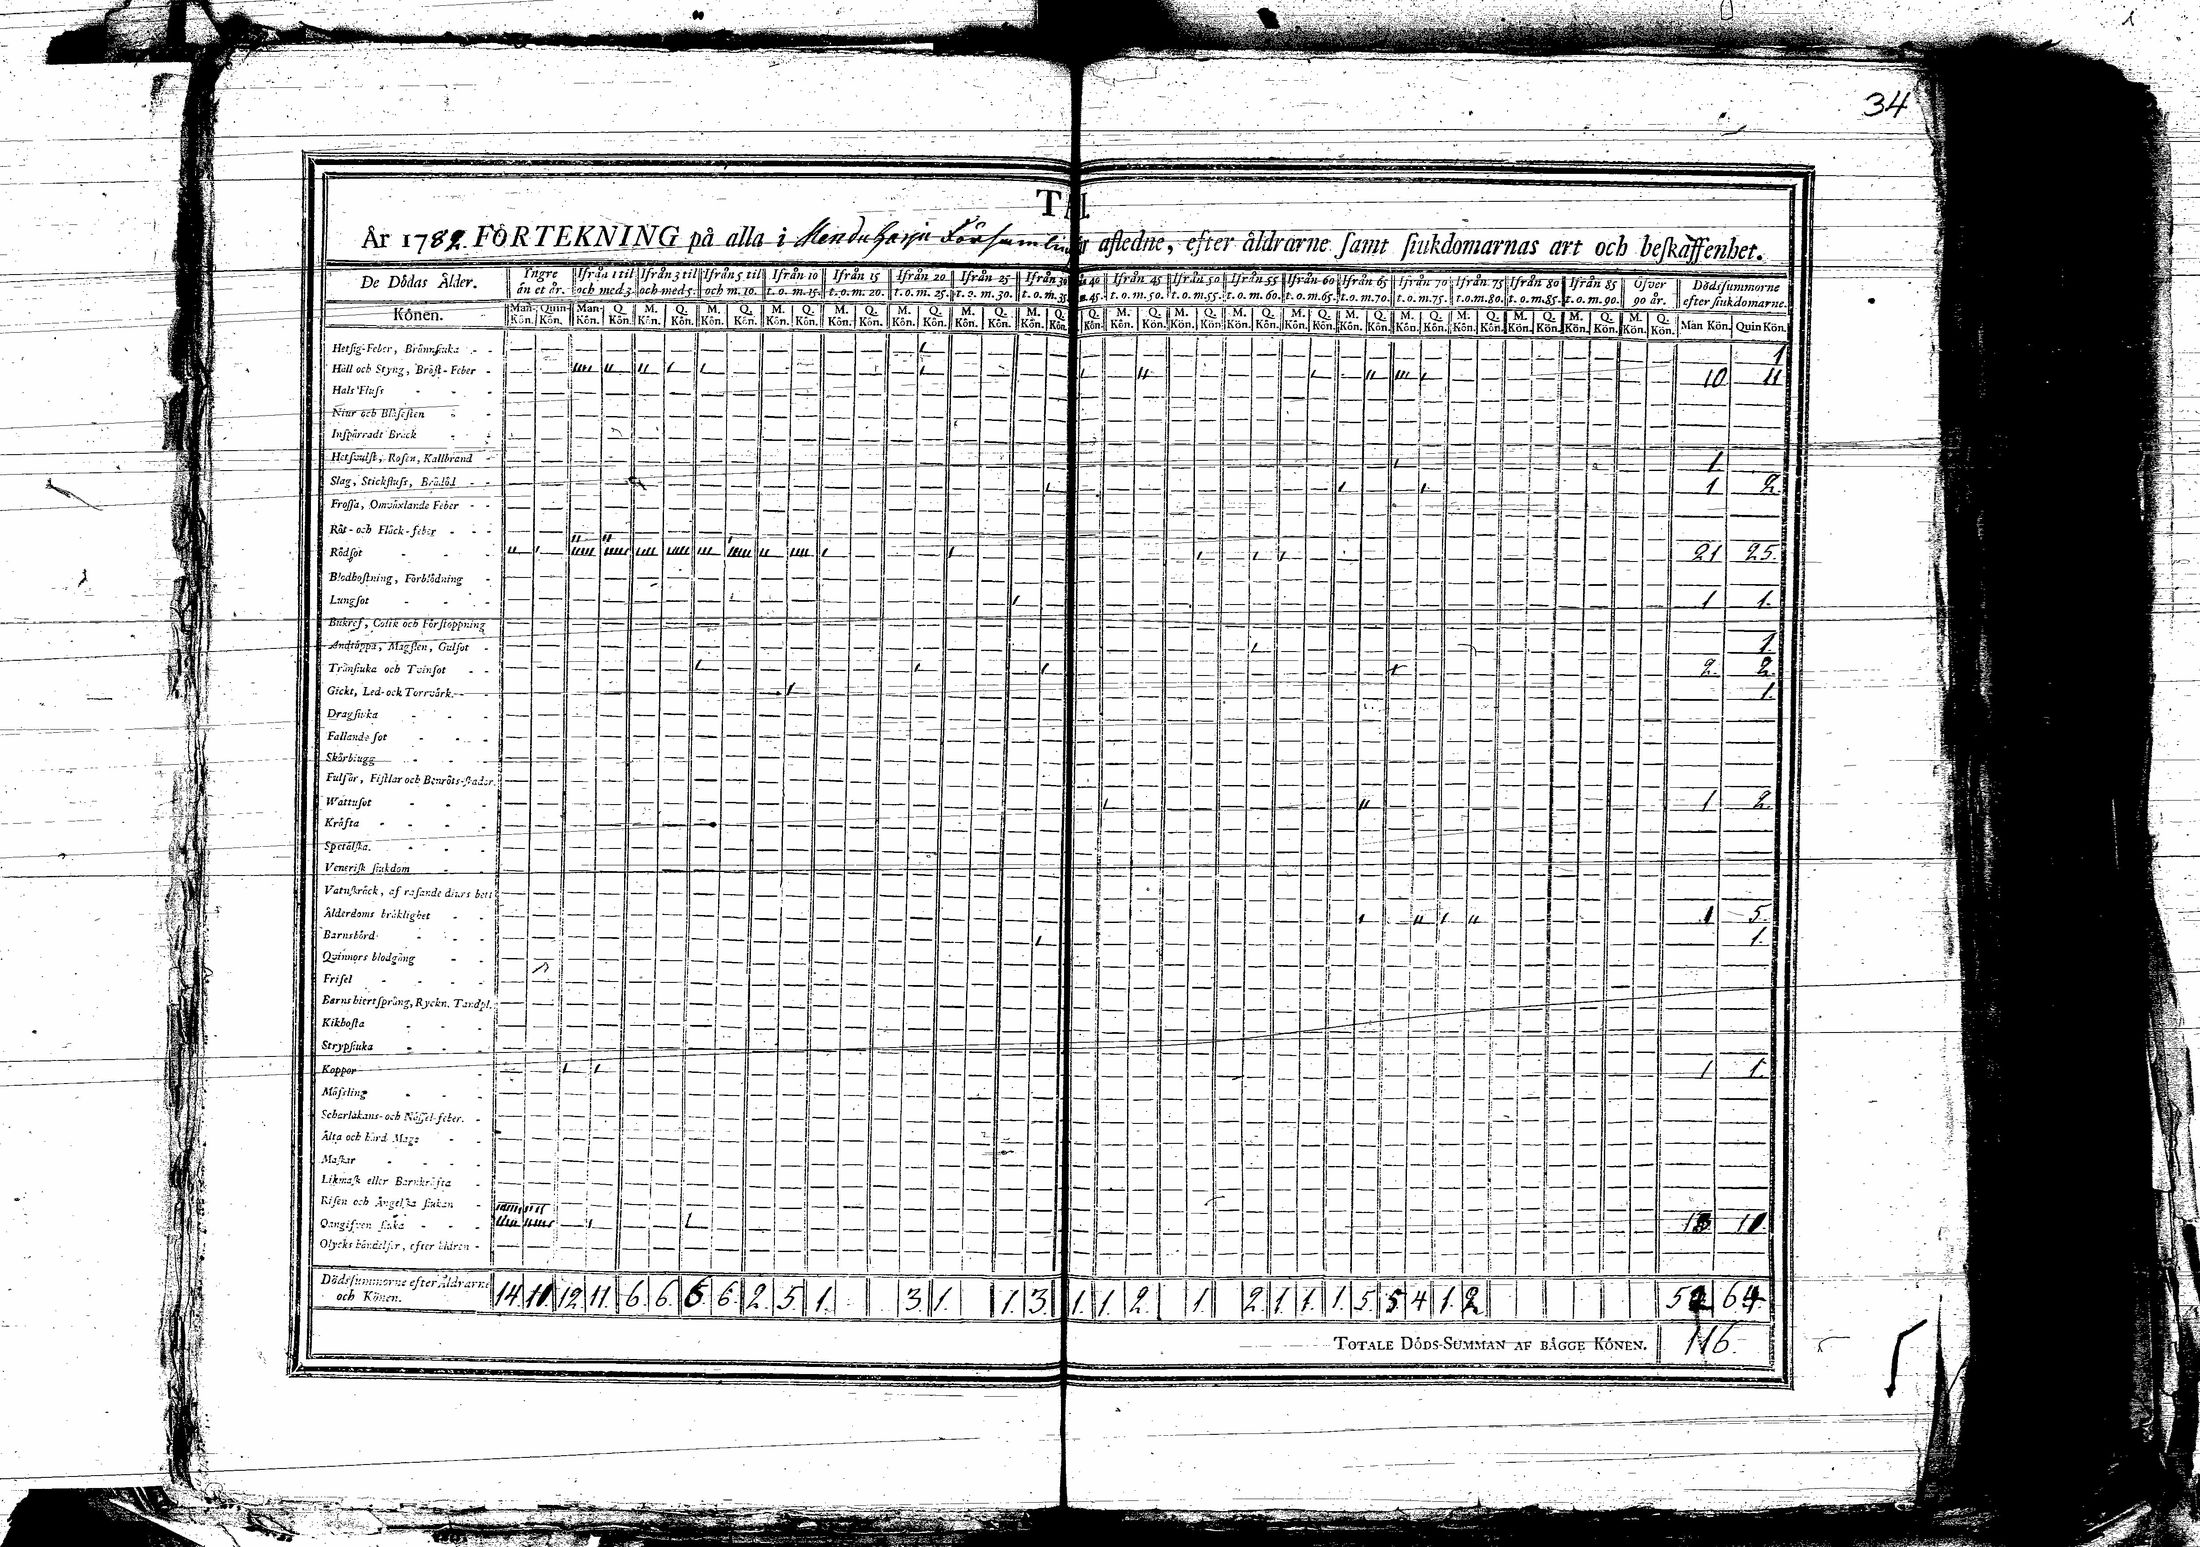 34
År 1782. FÖRTEKNING på alla i Församling afledne, efter åldrarne samt siukdomarnas art och beskaffenhet.
De Dödas Ålder. Yngre än et år. Ifrån 1 til och med 3. Ifrån 3 til och med 5. Ifrån 5 til och m. 10. Ifrån 10 t. o. m. 15. Ifrån 15 t. o. m. 20. Ifrån 20 t. o. m. 25. Ifrån 25 t. o. m. 30. Ifrån 30 t. o. m. 35. 40 m. 45. Ifrån 45 t. o. m. 50. Ifrån 50 t. o. m. 55. Ifrån 55 t. o. m. 60. Ifrån 60 t. o. m. 65. Ifrån 65 t. o. m. 70. Ifrån 70 t. o. m. 75. Ifrån 75 t. o. m. 80. Ifrån 80 t. o. m. 85. Ifrån 85 t. o. m. 90. Öfver 90 år. Dödssummorne efter siukdomarne.
Könen. Man-Kön. Quin-Kön. Man-Kön. Q. Kön. M. Kön. Q. Kön. M. Kön. Q. Kön. M. Kön. Q. Kön. M. Kön. Q. Kön. M. Kön. Q. Kön. M. Kön. Q. Kön. M. Kön. Q. Kön. Q. Kön. M. Kön. Q. Kön. M. Kön. Q. Kön. M. Kön. Q. Kön. M. Kön. Q. Kön. M. Kön. Q. Kön. M. Kön. Q. Kön. M. Kön. Q. Kön. M. Kön. Q. Kön. M. Kön. Q. Kön. M. Kön. Q. Kön. Man Kön. Quin Kön.
Hetsig-Feber, Brännsiuka 1
Håll och Styng, Bröst-Feber 10 11
Hals Fluss
Niur och Blåsesten
Inspärradt Bråck
Hetsvulst, Rosen, Kallbrand 1
Slag, Stickfluss, Brådöd 1 2.
Frossa, Omväxlande Feber
Röt- och Fläck-feber
Rödsot 21 25.
Blodhostning, Förblödning
Lungsot 1 1.
Bukref, Colik och Förstoppning
Andtäppa, Magsten, Gulsot 1.
Tränsiuka och Tvinsot 2. 2.
Gickt, Led- ock Torrvärk. 1.
Dragsiuka
Fallande sot
Skörbiugg
Fulsår, Fistlar och Benröts-skador.
Wattusot 1 2.
Kräfta
Spetälska.
Venerisk siukdom
Vatuskräck, af rasande diurs bett
Ålderdoms bräklighet 1 5.
Barnsbörd 1.
Quinnors blodgång
Frisel
Barns hiertsprång, Ryckn. Tandpl.
Kikhosta
Strypsiuka
Koppor 1 1.
Mässling
Scharlakans- och Nässel-feber.
Älta och hård Mage
Maskar
Likmask eller Barnkräfta
Risen och Ängelska siukan
Oangifven siuka
Olycks händelser, efter åldren
Dödssummorne efter Åldrarne och Könen. 14. 10. 12. 11. 6. 6. 6. 6. 2. 5. 1. 3. 1. 1. 3. 1. 1. 2. 1. 2. 1. 1. 1. 5. 5. 4. 1. 2. 52 64.
TOTALE DÖDS-SUMMAN AF BÄGGE KÖNEN. 116.